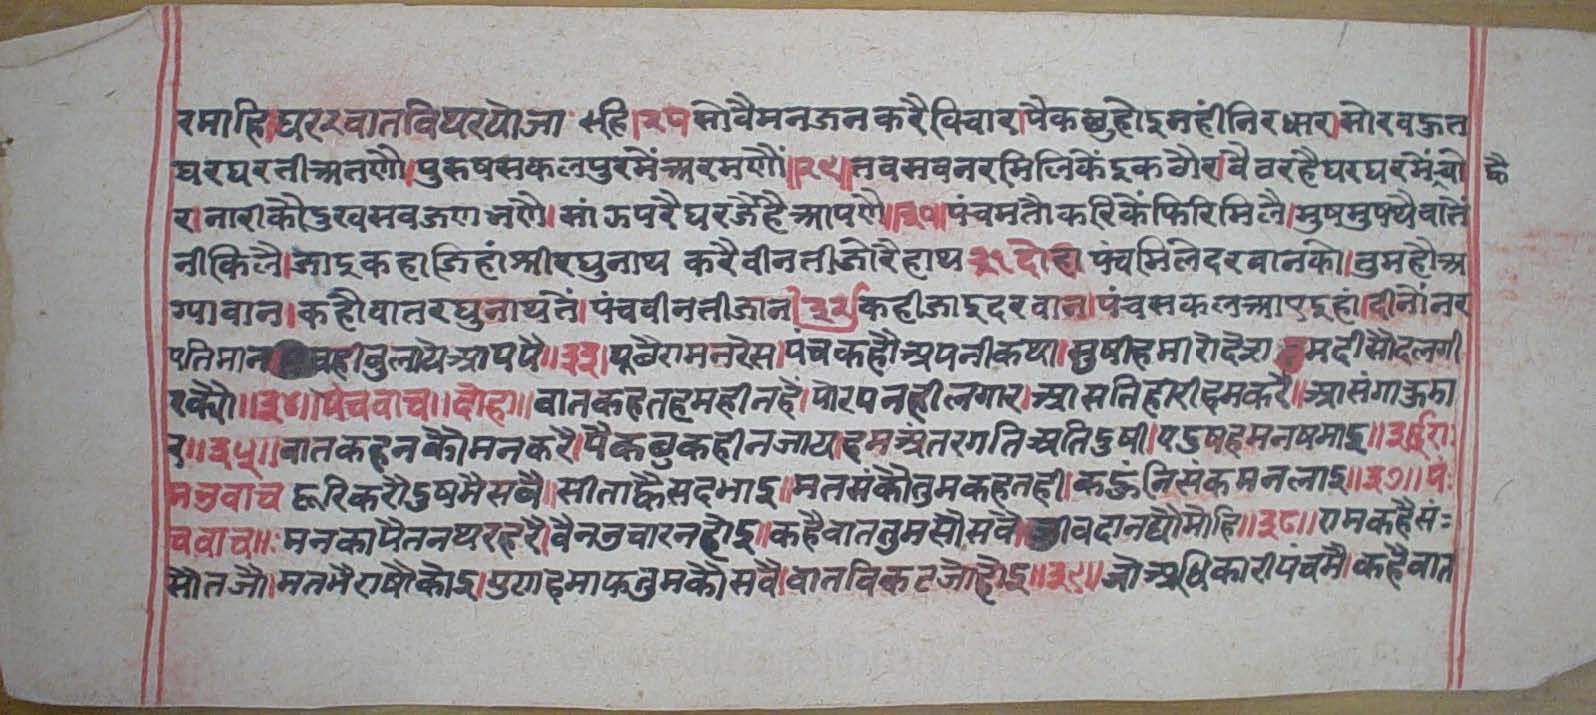 रमाहि।घररवातविथरयोजाहि।२८ सोवैमनजनकरैविचार।पैकछुहोइनहींनिरधार।सोरवऊत
घरघरतीअतणौ।पुरुषसकलपुरमेंअरमणौं॥२९॥तवसवनरमिलिकेंइकठौर।वैवरहैघरघरमेंचो
र।नारीकौदुखसवजणभणै।सांऊपरैघरजैहैआपणै॥३०॥पंचमतौकरिकेंफिरिमिलै।मुषमुषथैवातैं
नीकिलै।जाइकहाजिहांश्रीरघुनाथ करैवीनतीजोरैहाथ ३१ दोहा पंचमिलेदरवानको।तुमहौअ
ग्यावान।कहौवातरघुनाथतें।पंचवीनतीजान।३२।कहीजाइदरवान।पंचसकलआएइहां।दीनोंनर
पतिमान वहीवुलायेआपपै॥३३।पूछैरामनरेस।पंचकहौअपनीकथा।सुषीहमारोदेश।तुमदीसौदलगी
रक्यौ॥३४॥पंचवाच॥दोहा॥वातकहतहमहीनहै।षोरपनहीलगार।आसतिहारीहमकरै॥आसंगाऊमा
र॥३५॥वातकहनकौमनकरै।पैकछुकहीनजाय।हमअंतरगतिअतिदुषी।एदुषहमनषमाइ॥३६रा:
मउवाच दूरिकरौदुषमैसवै॥सीताहैसदभाइ॥मतसंकौतुमकहतही।कहूंनिसंकमनलाइ॥३७॥पं:
चवाच॥:मनकापैतनथरहरै।वैनउचारनहोइ॥कहैवाततुमसौसवै।जीवदानद्यौमोहि॥३८॥रामकहैसं:
सौतजौ।मतमैराषौकोइ।गुणहमाफतुमकौसवै।वातविकटजोहोइ॥३९॥जोअधिकारीपंचमै।कहैवात